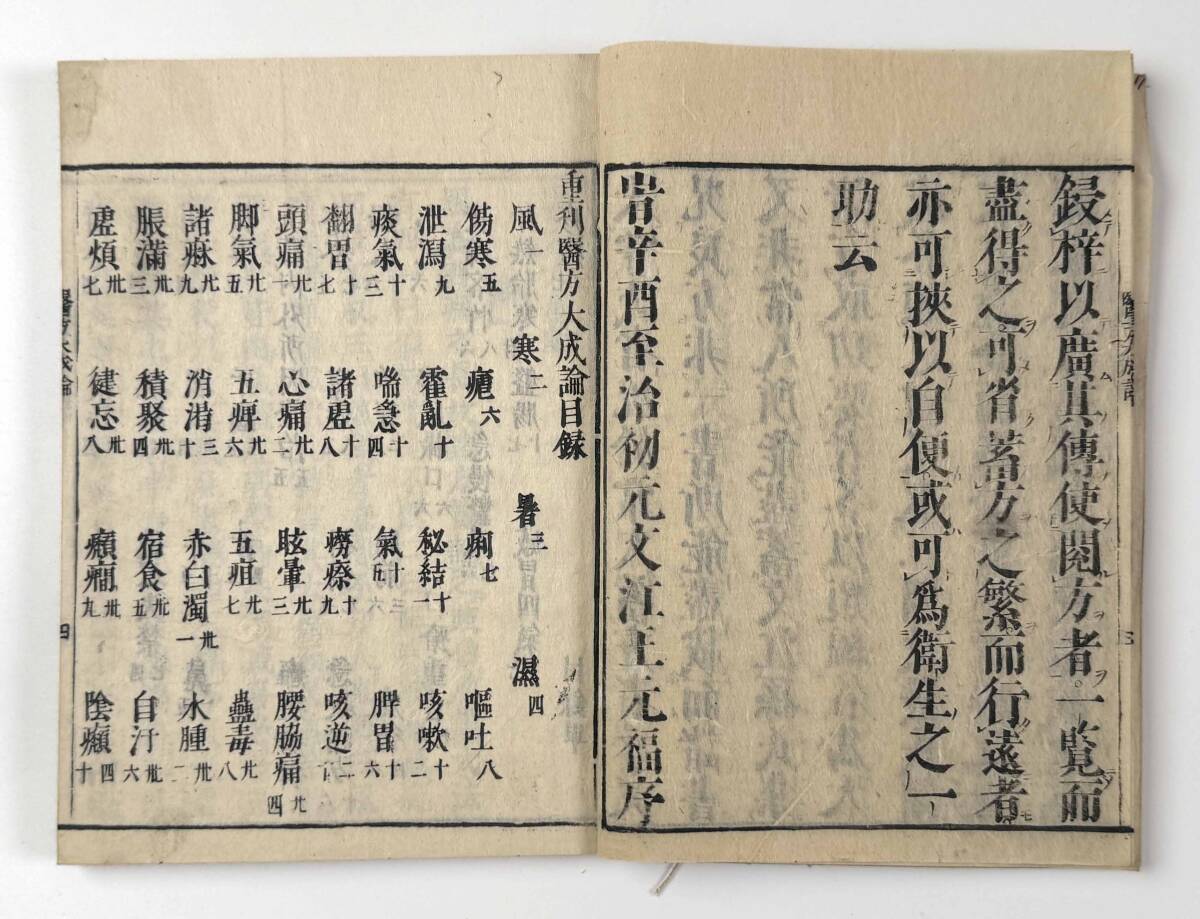 醫方大成論 三
鋟梓以廣其傳使閱方者一覽而
盡得之可省蓄方之繁而行遠者
亦可挾以自便或可爲衛生之一
助云
旹辛酉至治初元文江王元福序
重刊醫方大成論目録
風一 寒二 暑三 濕四
傷寒五 瘧六 痢七 嘔吐八
泄瀉九 霍亂十 秘結十一 咳嗽十二
痰氣十三 喘急十四 氣十五 脾胃十六
翻胃十七 諸虛十八 癆瘵十九 咳逆二十
頭痛卄一 心痛卄二 眩暈卄三 腰脇痛卄四
脚氣卄五 五痺卄六 五疸卄七 蠱毒卄八
諸痳卄九 消渇三十 赤白濁卅一 水腫卅二
脹滿卅三 積聚卅四 宿食卅五 自汗卅六
虛煩卅七 健忘卅八 癲癇卅九 陰㿗四十
醫方大成論 四